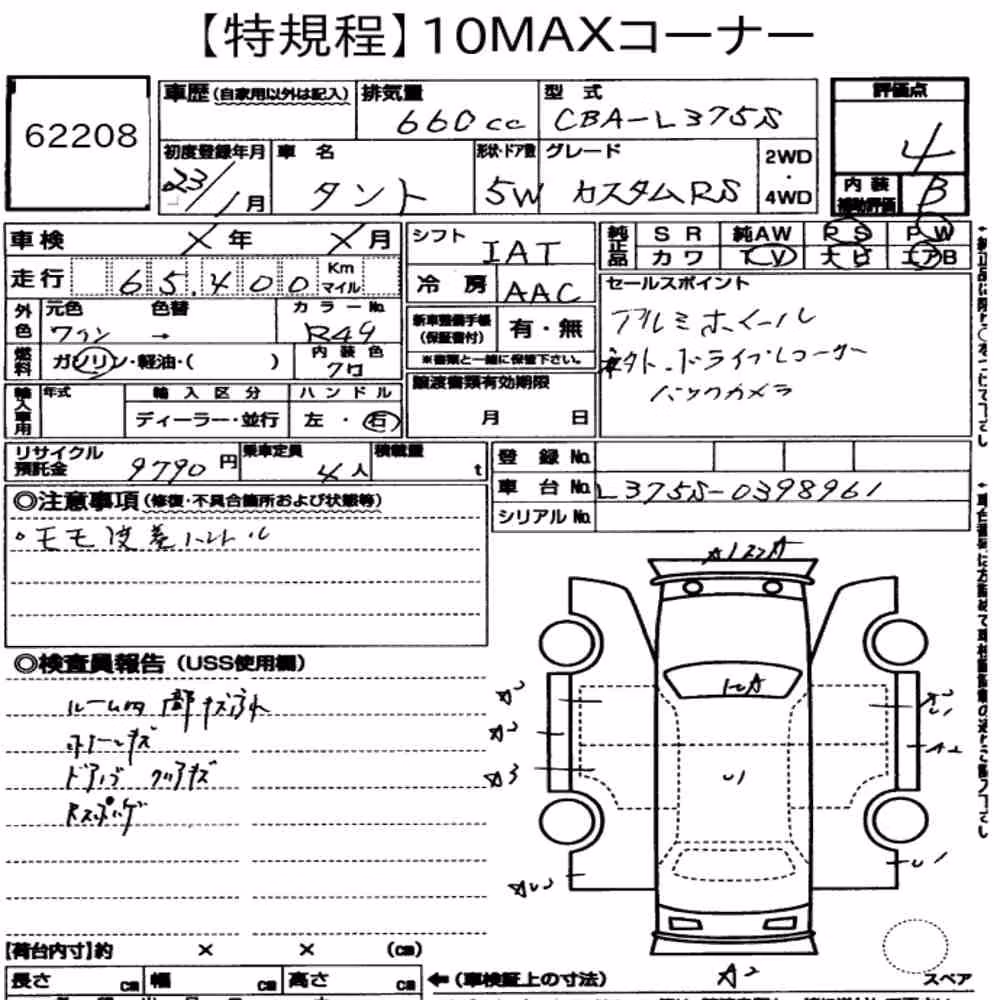 【特規程】10MAXコーナー
62208
車歴(自家用以外は記入)
排気量 660cc
型式 CBA-L375S
評価点 4
初度登録年月 23/1月
車名 タント
形状・ドア数 5W
グレード カスタムRS
2WD・4WD
内装補助評価 B
車検 X年 X月
シフト IAT
純正品 SR 純AW RS PW
カワ TV ナビ エアB
走行 65,400 Km マイル
冷房 AAC
セールスポイント
アルミホイール
社外.ドライブレコーダー
バックカメラ
外色 元色 ワイン 色替 → カラーNo. R49
新車整備手帳(保証書付) 有・無
※書類と一緒に保管下さい。
燃料 ガソリン・軽油・( ) 内装色 クロ
譲渡書類有効期限
月 日
輸入車用 年式 輸入区分 ハンドル
ディーラー・並行 左・右
リサイクル預託金 9790円
乗車定員 4人
積載量 t
登録No.
車台No. L375S-0398961
シリアルNo.
◎注意事項(修復・不具合箇所および状態等)
。モモ皮巻ハンドル
◎検査員報告(USS使用欄)
ルーム内
ドアバイザー
A2
A2
A3
U1
A2
U1
U1
A2
【荷台内寸】約 × × (cm)
スペア
長さ cm 幅 cm 高さ cm
←(車検証上の寸法)